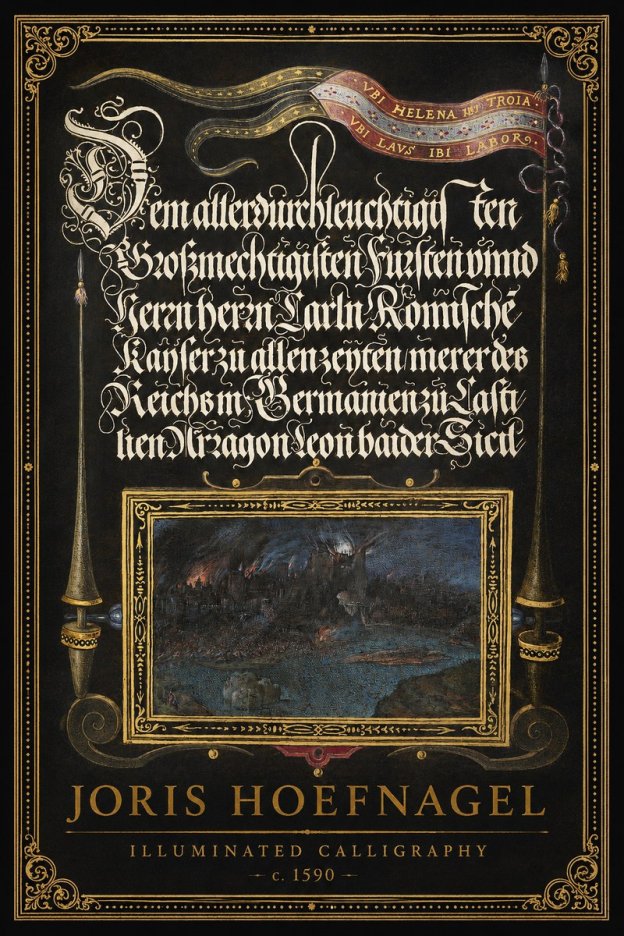 VBI HELENA IBI TROIA.
VBI LAVS IBI LABOR
Dem allerdurchleuchtigisten
Großmechtigisten Fursten vnnd
Herrn herrn Carln Römische
Kayser zu allen zeyten merer des
Reichs in Germanien zů Casti
lien Arragon Leon baider Sicil
JORIS HOEFNAGEL
ILLUMINATED CALLIGRAPHY
– c. 1590 –